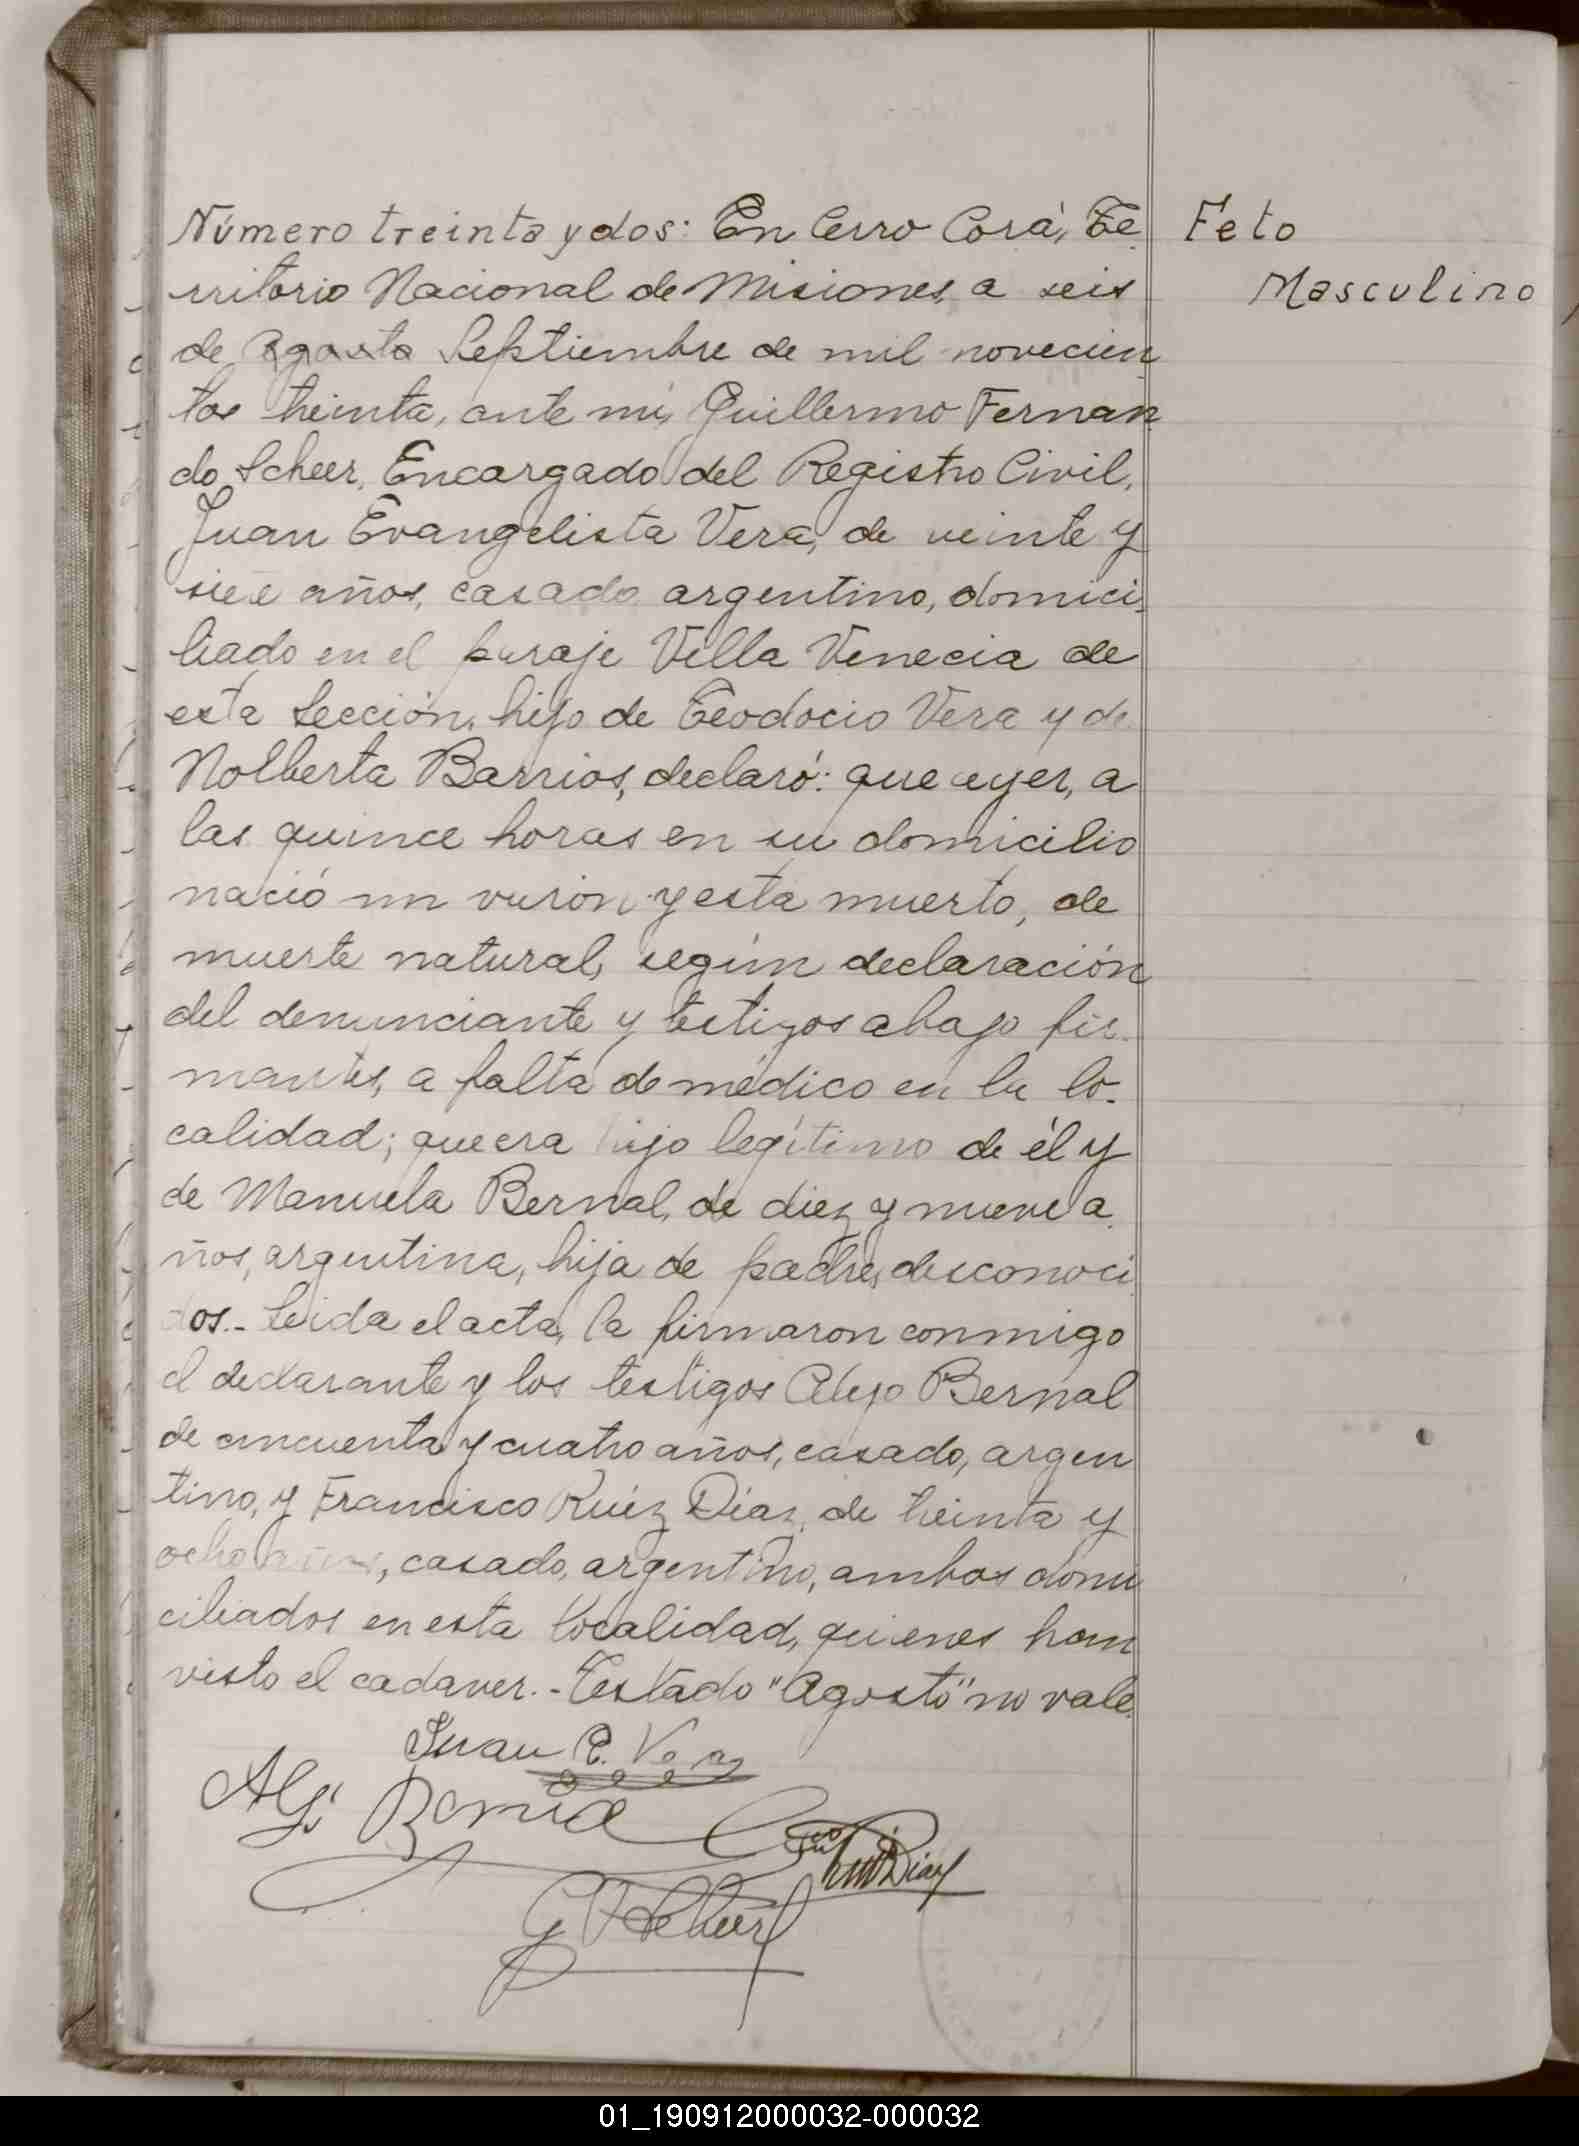 Número treinta y dos: En Cerro Corá, Te
rritorio Nacional de Misiones, a seis
de Agosto Septiembre de mil novecien
tos treinta, ante mí, Guillermo Fernan
do Scheer, Encargado del Registro Civil,
Juan Evangelista Vera, de veinte y
siete años, casado, argentino, domici
liado en el paraje Villa Venecia de
esta Sección, hijo de Teodocio Vera y de
Nolberta Barrios, declaró: que ayer, a
las quince horas en su domicilio
nació un varón y esta muerto, de
muerte natural, según declaración
del denunciante y testigos abajo fir-
mantes, a falta de médico en la lo-
calidad; que era hijo legítimo de él y
de Manuela Bernal, de diez y nueve a
ños, argentina, hija de padres desconoci
dos.- Leida el acta, la firmaron conmigo
el declarante y los testigos Alejo Bernal
de cincuenta y cuatro años, casado, argen
tino, y Francisco Ruíz Díaz, de treinta y
ocho años, casado, argentino, ambos domi
ciliados en esta localidad, quienes han
visto el cadaver.- Testado "Agosto" no vale.
Feto
Masculino
Juan E. Vera
Alejo Bernal
Fco Ruiz Diaz
G F Scheer
01_190912000032-000032